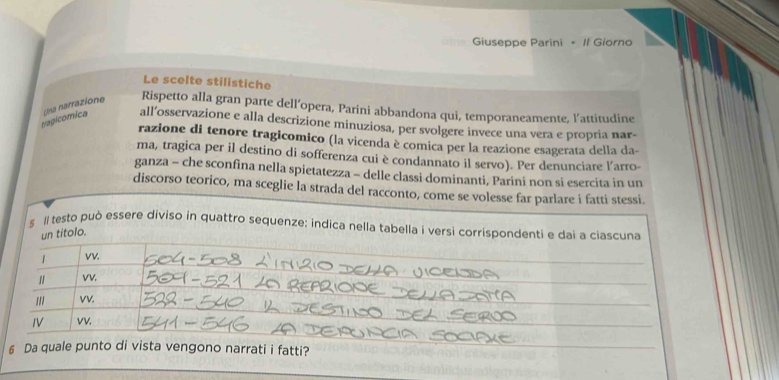 Giuseppe Parini - Il Giorno
Le scelte stilistiche
Una narrazione
tragicomica
Rispetto alla gran parte dell'opera, Parini abbandona qui, temporaneamente, l'attitudine
all'osservazione e alla descrizione minuziosa, per svolgere invece una vera e propria nar-
razione di tenore tragicomico (la vicenda è comica per la reazione esagerata della da-
ma, tragica per il destino di sofferenza cui è condannato il servo). Per denunciare l'arro-
ganza – che sconfina nella spietatezza – delle classi dominanti, Parini non si esercita in un
discorso teorico, ma sceglie la strada del racconto, come se volesse far parlare i fatti stessi.
5 Il testo può essere diviso in quattro sequenze: indica nella tabella i versi corrispondenti e dai a ciascuna
un titolo.
I vv. 504-508 L'INIZIO DELLA VICENDA
II vv. 509-521 LA REAZIONE DELLA DAMA
III vv. 522-540 IL DESTINO DEL SERVO
IV vv. 541-546 LA DENUNCIA SOCIALE
6 Da quale punto di vista vengono narrati i fatti?